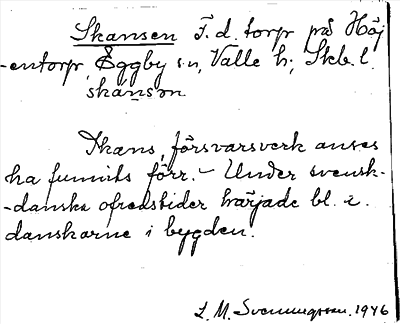 Skansen F.d. torp på Höj
-entorp, Eggby sn, Valle h; Skb. l.
skansᴏn
Skans, försvarsverk anses
ha funnits förr. – Under svensk-
-danska ofredstider härjade bl. a.
danskarne i bygden.
L. M. Svenungsson. 1946